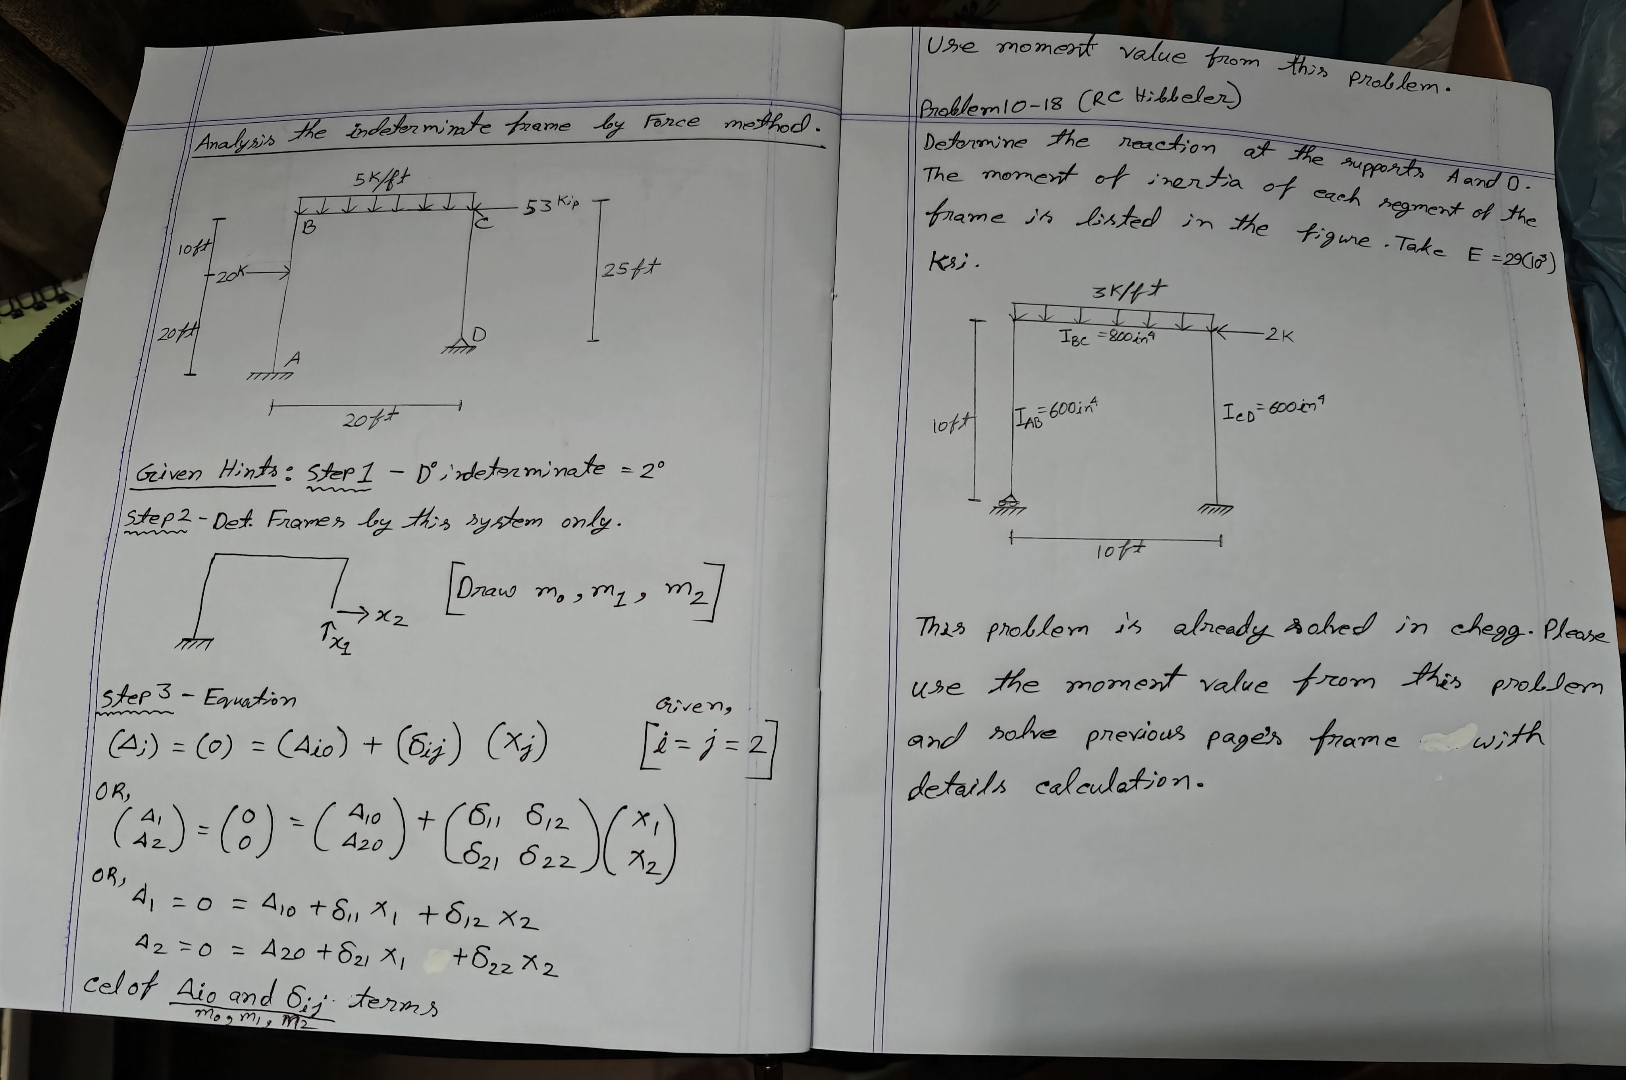 Analysis the indeterminate frame by Force method.
5K/ft
B
C
53 Kip
10ft
20K
25ft
20ft
A
D
20ft
Given Hints: Step 1 - D° indeterminate = 2°
Step 2 - Det. Frames by this system only.
[Draw m₀, m₁, m₂]
x₂
x₁
Step 3 - Equation
Given,
(Δi) = (0) = (Δio) + (δij) (Xj) [i = j = 2]
OR,
(Δ₁ Δ₂) = (0 0) = (Δ10 Δ20) + (δ11 δ12 δ21 δ22) (X₁ X₂)
OR,
Δ₁ = 0 = Δ10 + δ11 X₁ + δ12 X2
Δ2 = 0 = Δ20 + δ21 X₁ + δ22 X2
cel of Δio and δij terms
m₀, m₁, m2
Use moment value from this problem.
Problem 10-18 (RC Hibbeler)
Determine the reaction at the supports A and D.
The moment of inertia of each segment of the
frame is listed in the figure. Take E = 29(10³)
Ksi.
3K/ft
IBC = 800in⁴
2K
10ft
IAB = 600in⁴
ICD = 600in⁴
10ft
This problem is already solved in chegg. Please
use the moment value from this problem
and solve previous page's frame with
details calculation.